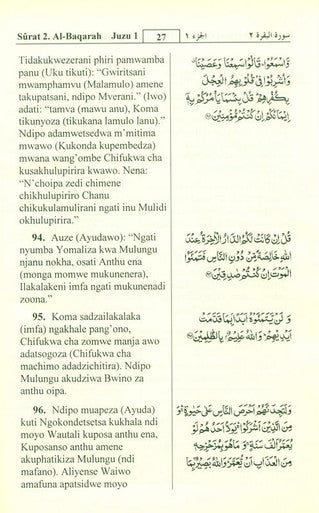 Sûrat 2. Al-Baqarah Juzu 1 27 الجزء ١ سورة البقرة ٢
Tidakukwezerani phiri pamwamba
panu (Uku tikuti): “Gwiritsani
mwamphamvu (Malamulo) amene
takupatsani, ndipo Mverani.” (Iwo)
adati: “tamva (mawu anu), Koma
tikunyoza (tikukana lamulo lanu).”
Ndipo adamwetsedwa m’mitima
mwawo (Kukonda kupembedza)
mwana wang’ombe Chifukwa cha
kusakhulupirira kwawo. Nena:
“N’choipa zedi chimene
chikhulupiriro Chanu
chikukulamulirani ngati inu Mulidi
okhulupirira.”
وَٱسْمَعُوا۟ قَالُوا۟ سَمِعْنَا وَعَصَيْنَا
وَأُشْرِبُوا۟ فِى قُلُوبِهِمُ ٱلْعِجْلَ
بِكُفْرِهِمْ قُلْ بِئْسَمَا يَأْمُرُكُم بِهِۦٓ
إِيمَٰنُكُمْ إِن كُنتُم مُّؤْمِنِينَ ٩٣
94. Auze (Ayudawo): “Ngati
nyumba Yomaliza kwa Mulungu
njanu nokha, osati Anthu ena
(monga momwe mukunenera),
Ilakalakeni imfa ngati mukunenadi
zoona.”
قُلْ إِن كَانَتْ لَكُمُ ٱلدَّارُ ٱلْـَٔاخِرَةُ عِندَ
ٱللَّهِ خَالِصَةً مِّن دُونِ ٱلنَّاسِ فَتَمَنَّوُا۟
ٱلْمَوْتَ إِن كُنتُمْ صَٰدِقِينَ ٩٤
95. Koma sadzailakalaka
(imfa) ngakhale pang’ono,
Chifukwa cha zomwe manja awo
adatsogoza (Chifukwa cha
machimo adadzichitira). Ndipo
Mulungu akudziwa Bwino za
anthu oipa.
وَلَن يَتَمَنَّوْهُ أَبَدًۢا بِمَا قَدَّمَتْ
أَيْدِيهِمْ وَٱللَّهُ عَلِيمٌۢ بِٱلظَّٰلِمِينَ ٩٥
96. Ndipo muapeza (Ayuda)
kuti Ngokondetsetsa kukhala ndi
moyo Wautali kuposa anthu ena,
Kuposanso anthu amene
akuphatikiza Mulungu (ndi
mafano). Aliyense Waiwo
amafuna apatsidwe moyo
وَلَتَجِدَنَّهُمْ أَحْرَصَ ٱلنَّاسِ عَلَىٰ حَيَوٰةٍ وَ
مِنَ ٱلَّذِينَ أَشْرَكُوا۟ يَوَدُّ أَحَدُهُمْ لَوْ
يُعَمَّرُ أَلْفَ سَنَةٍ وَمَا هُوَ بِمُزَحْزِحِهِۦ
مِنَ ٱلْعَذَابِ أَن يُعَمَّرَ وَٱللَّهُ بَصِيرٌۢ بِمَا